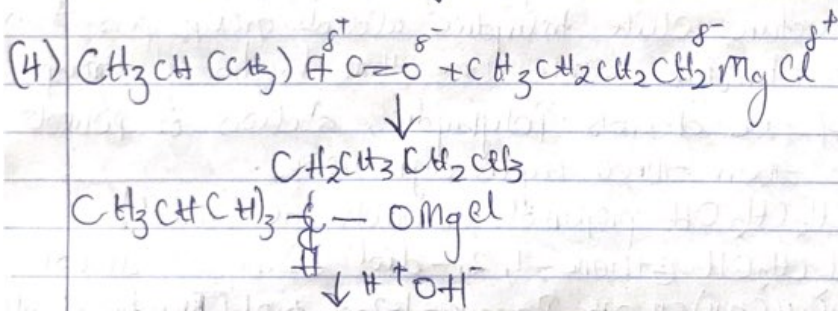 δ+ δ- δ- δ+
(4) CH3CH(CH3)HC=O + CH3CH2CH2CH2MgCl
↓
CH2CH3CH2CH3
CH3CHCH)3 - C - OMgCl
H
↓ H+OH-